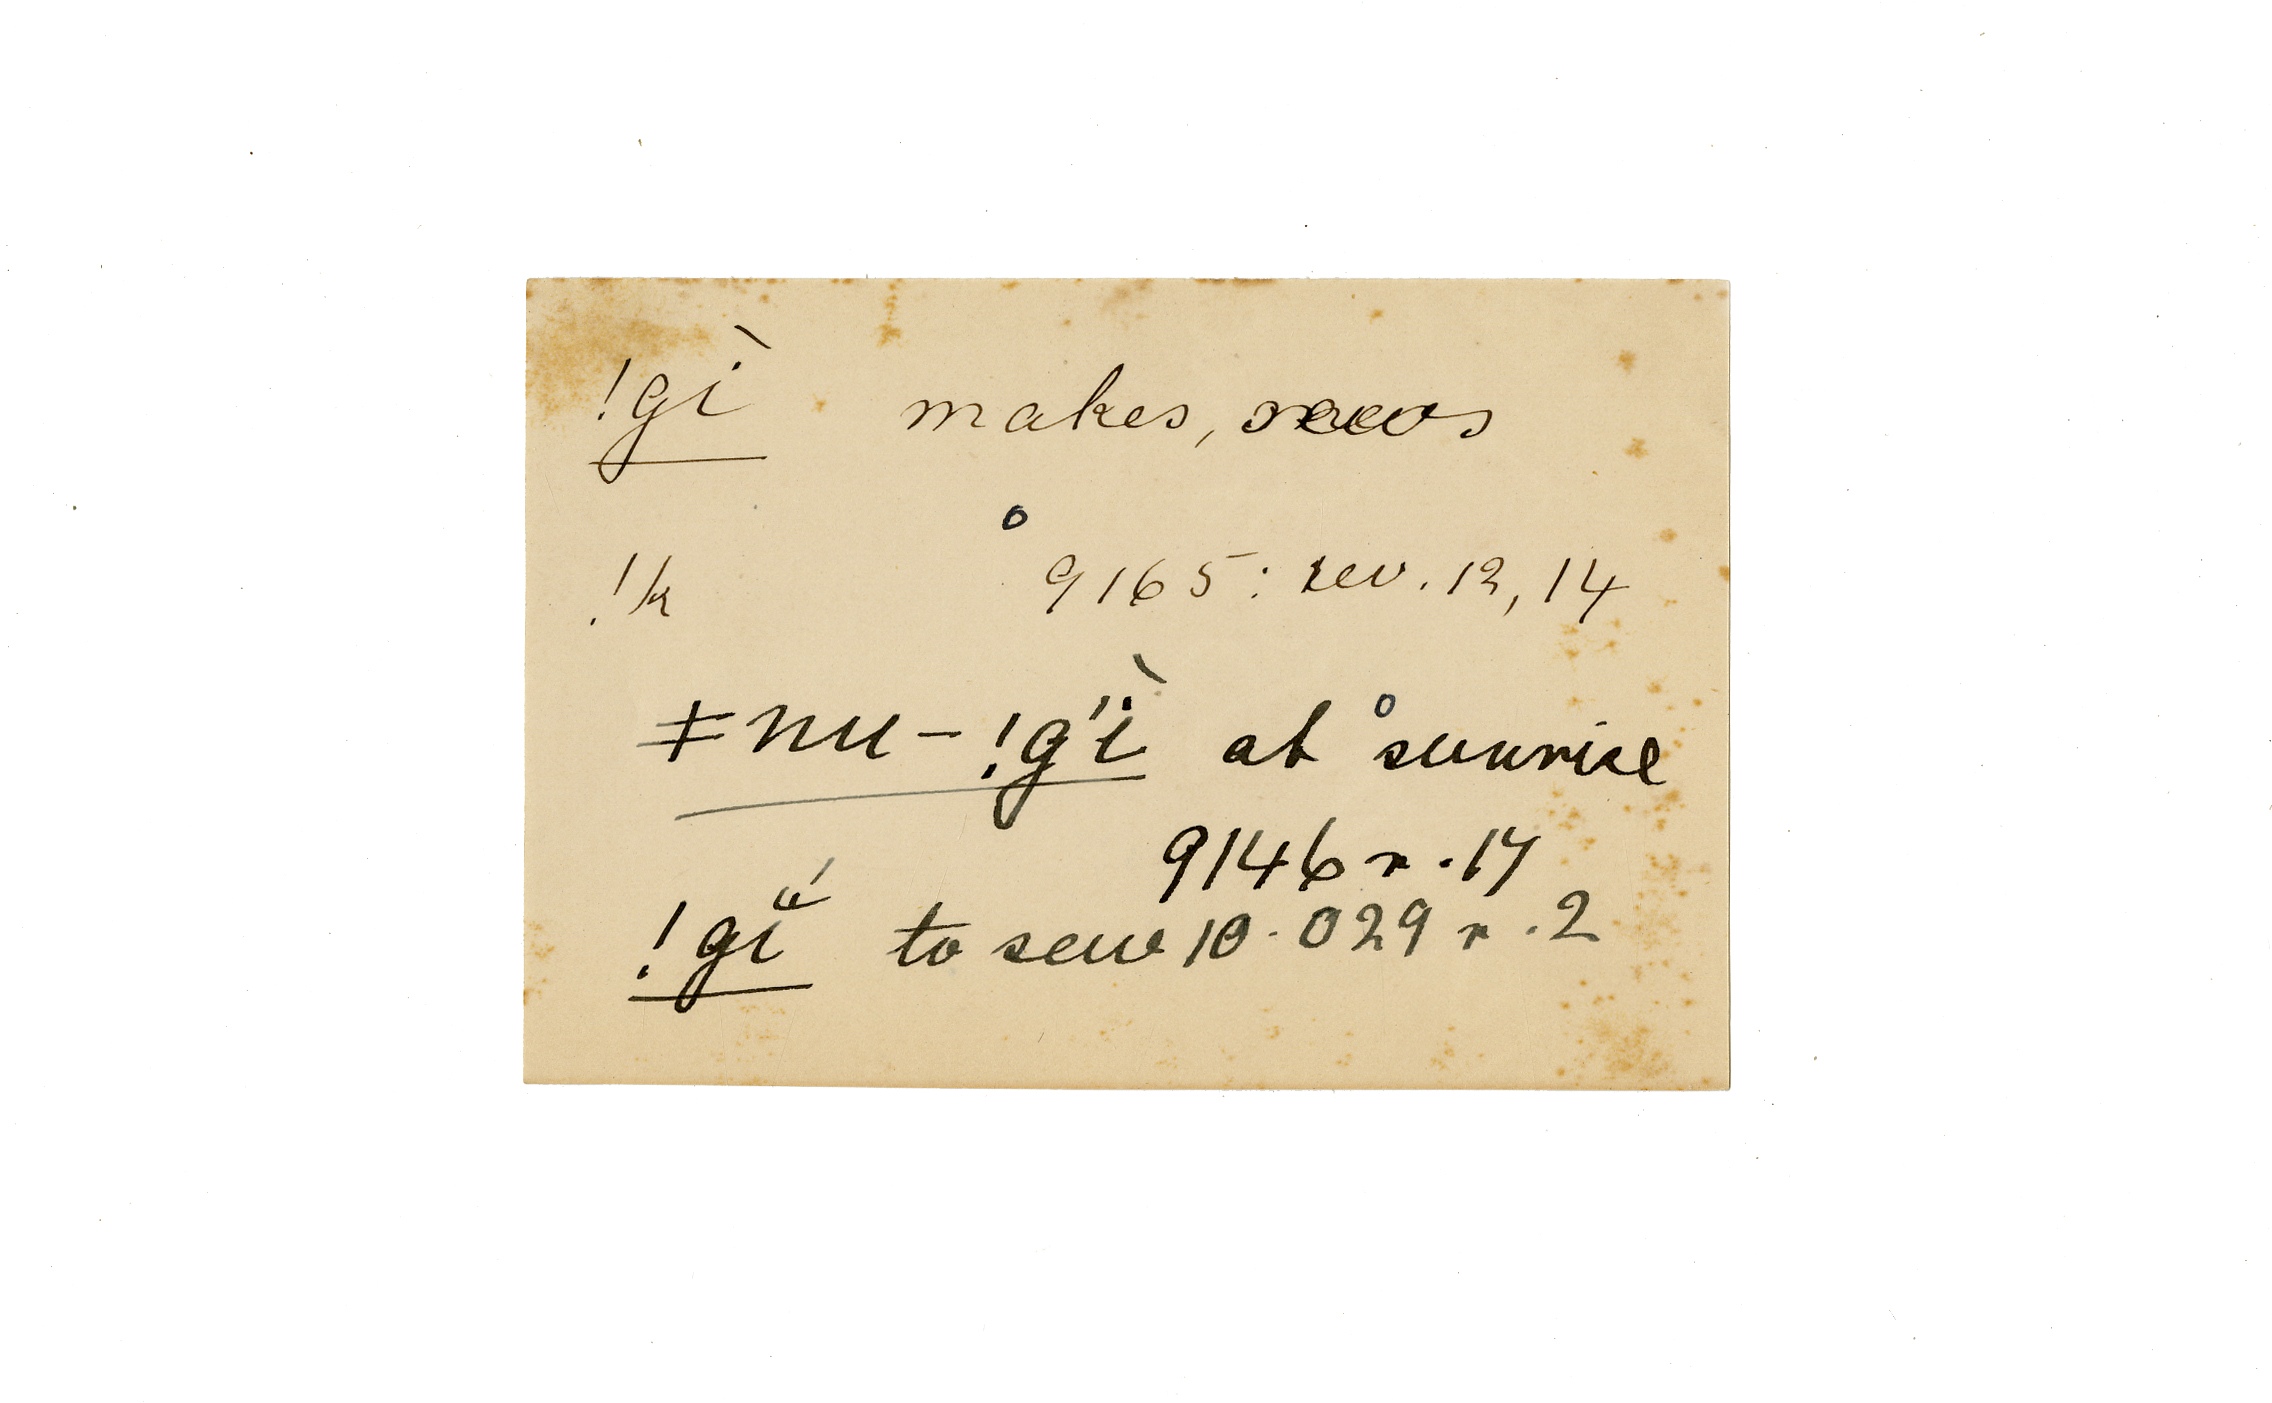 !gì makes, sews
o
!k 9165: rev. 12, 14
ǂnu-!g'ì at o sunrise
9146 r. 17
!gí to sew 10.029 r. 2